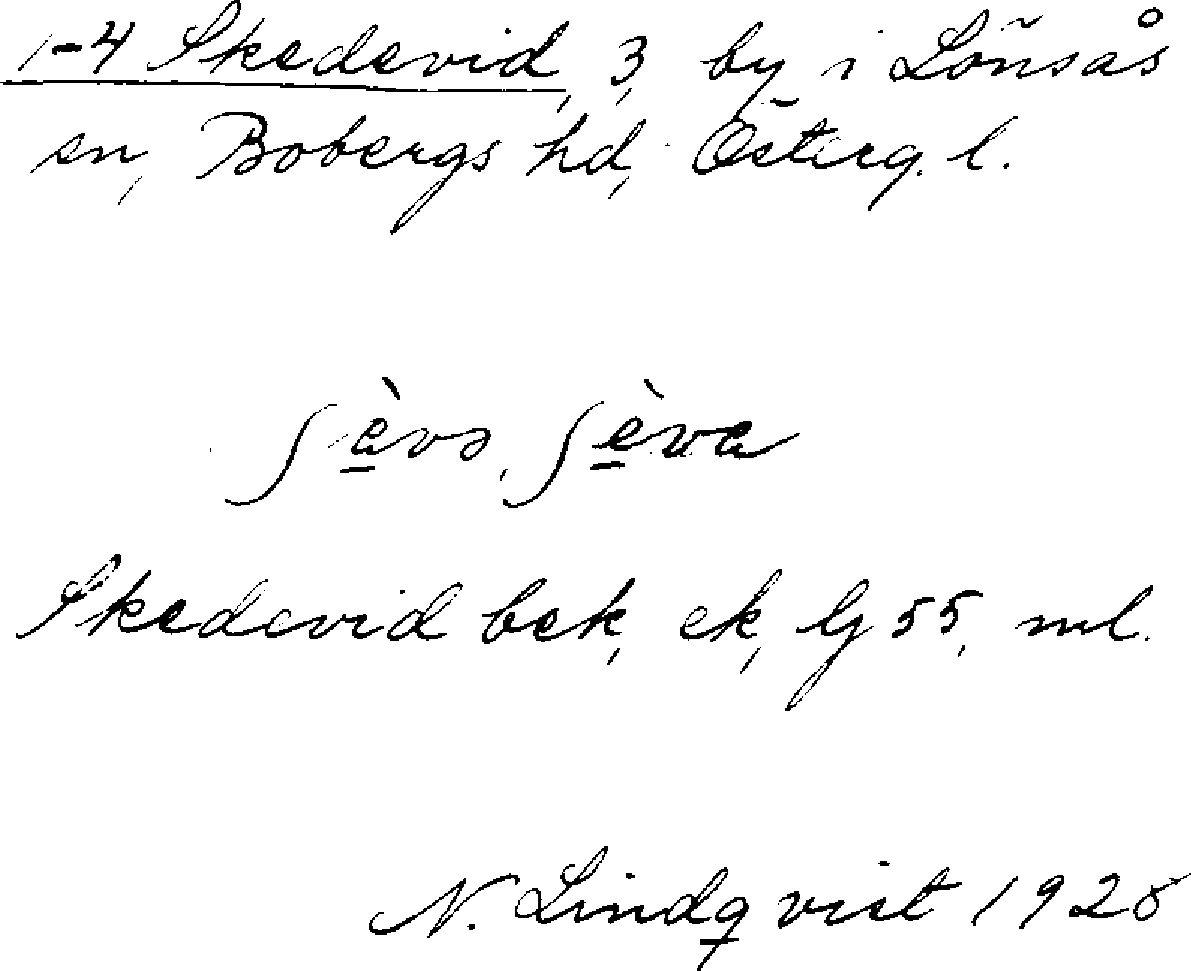 1-4 Skedevid, 3, by i Lönsås
sn, Bobergs hd, Österg. l.
ʃèvs, ʃèva
Skedevid bek, ek, lj 55, ml.
N. Lindqvist 1925